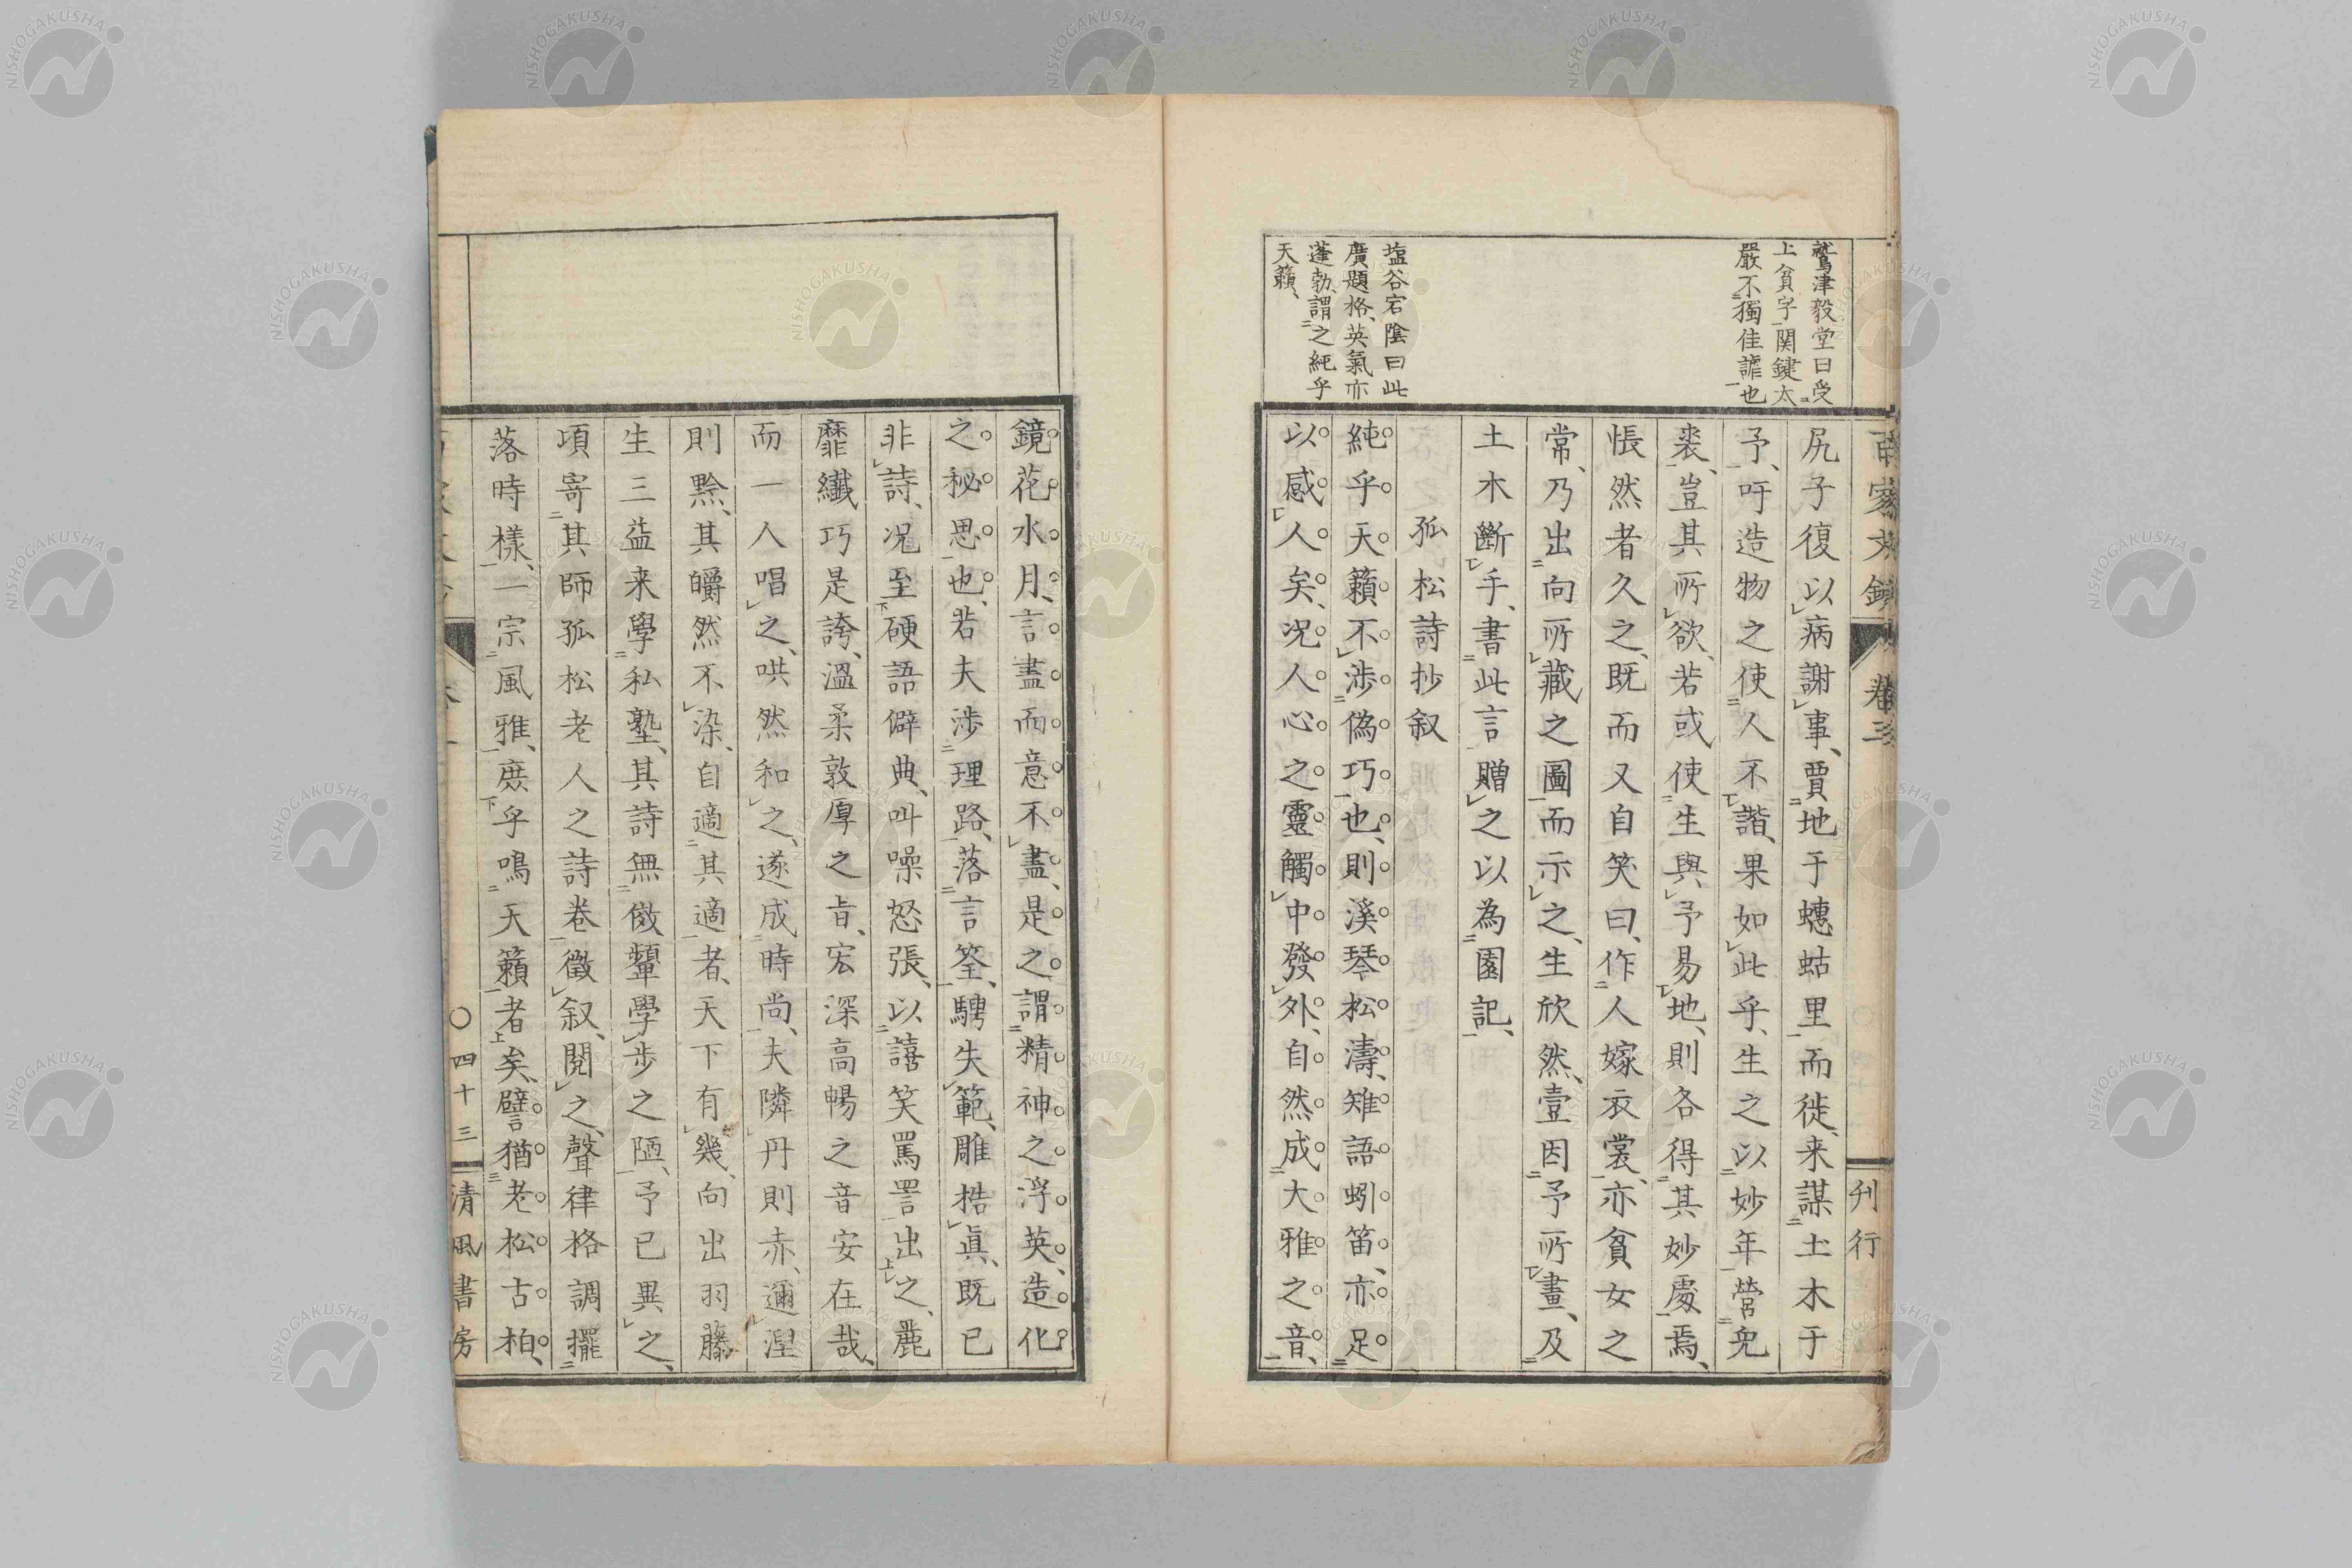 鷲津毅堂曰受
上貧字関鍵太
嚴不獨佳謔也
尻子復以病謝事、賈地于蟪蛄里而徙、来謀土木于
予、吁造物之使人不諧、果如此乎、生之以妙年營兜
裘、豈其所欲、若或使生與予易地、則各得其妙處焉、
悵然者久之、既而又自笑曰、作人嫁衣裳、亦貧女之
常、乃出向所藏之圖而示之、生欣然、壹因予所畫、及
土木斷手、書此言贈之以為園記、
塩谷宕陰曰此
廣題格、英氣亦
蓬勃、謂之純乎
天籟、
孤松詩抄叙
純乎天籟不渉偽巧也、則溪琴松濤、雉語蚓笛、亦足
以感人矣、况人心之靈觸中發外、自然成大雅之音、
鏡花水月、言盡而意不盡、是之謂精神之浮英、造化
之秘思也、若夫渉理路、落言筌、騁失範、雕梏真、既已
非詩、况至硬語僻典、叫噪怒張、以譆笑罵詈出之、麗
靡纖巧是誇、溫柔敦厚之旨、宏深高暢之音安在哉、
而一人唱之、哄然和之、遂成時尚、夫隣丹則赤、邇涅
則黙、其皭然不染、自適其適者、天下有幾、向出羽藤
生三益来學私塾、其詩無傚顰學步之陋、予已異之、
項寄其師孤松老人之詩卷徵叙、閱之、聲律格調擺
落時樣、一宗風雅、庶乎鳴天籟者矣、譬猶老松古柏、
百家文鈔 卷三
刊行
〇四十三
清風書房